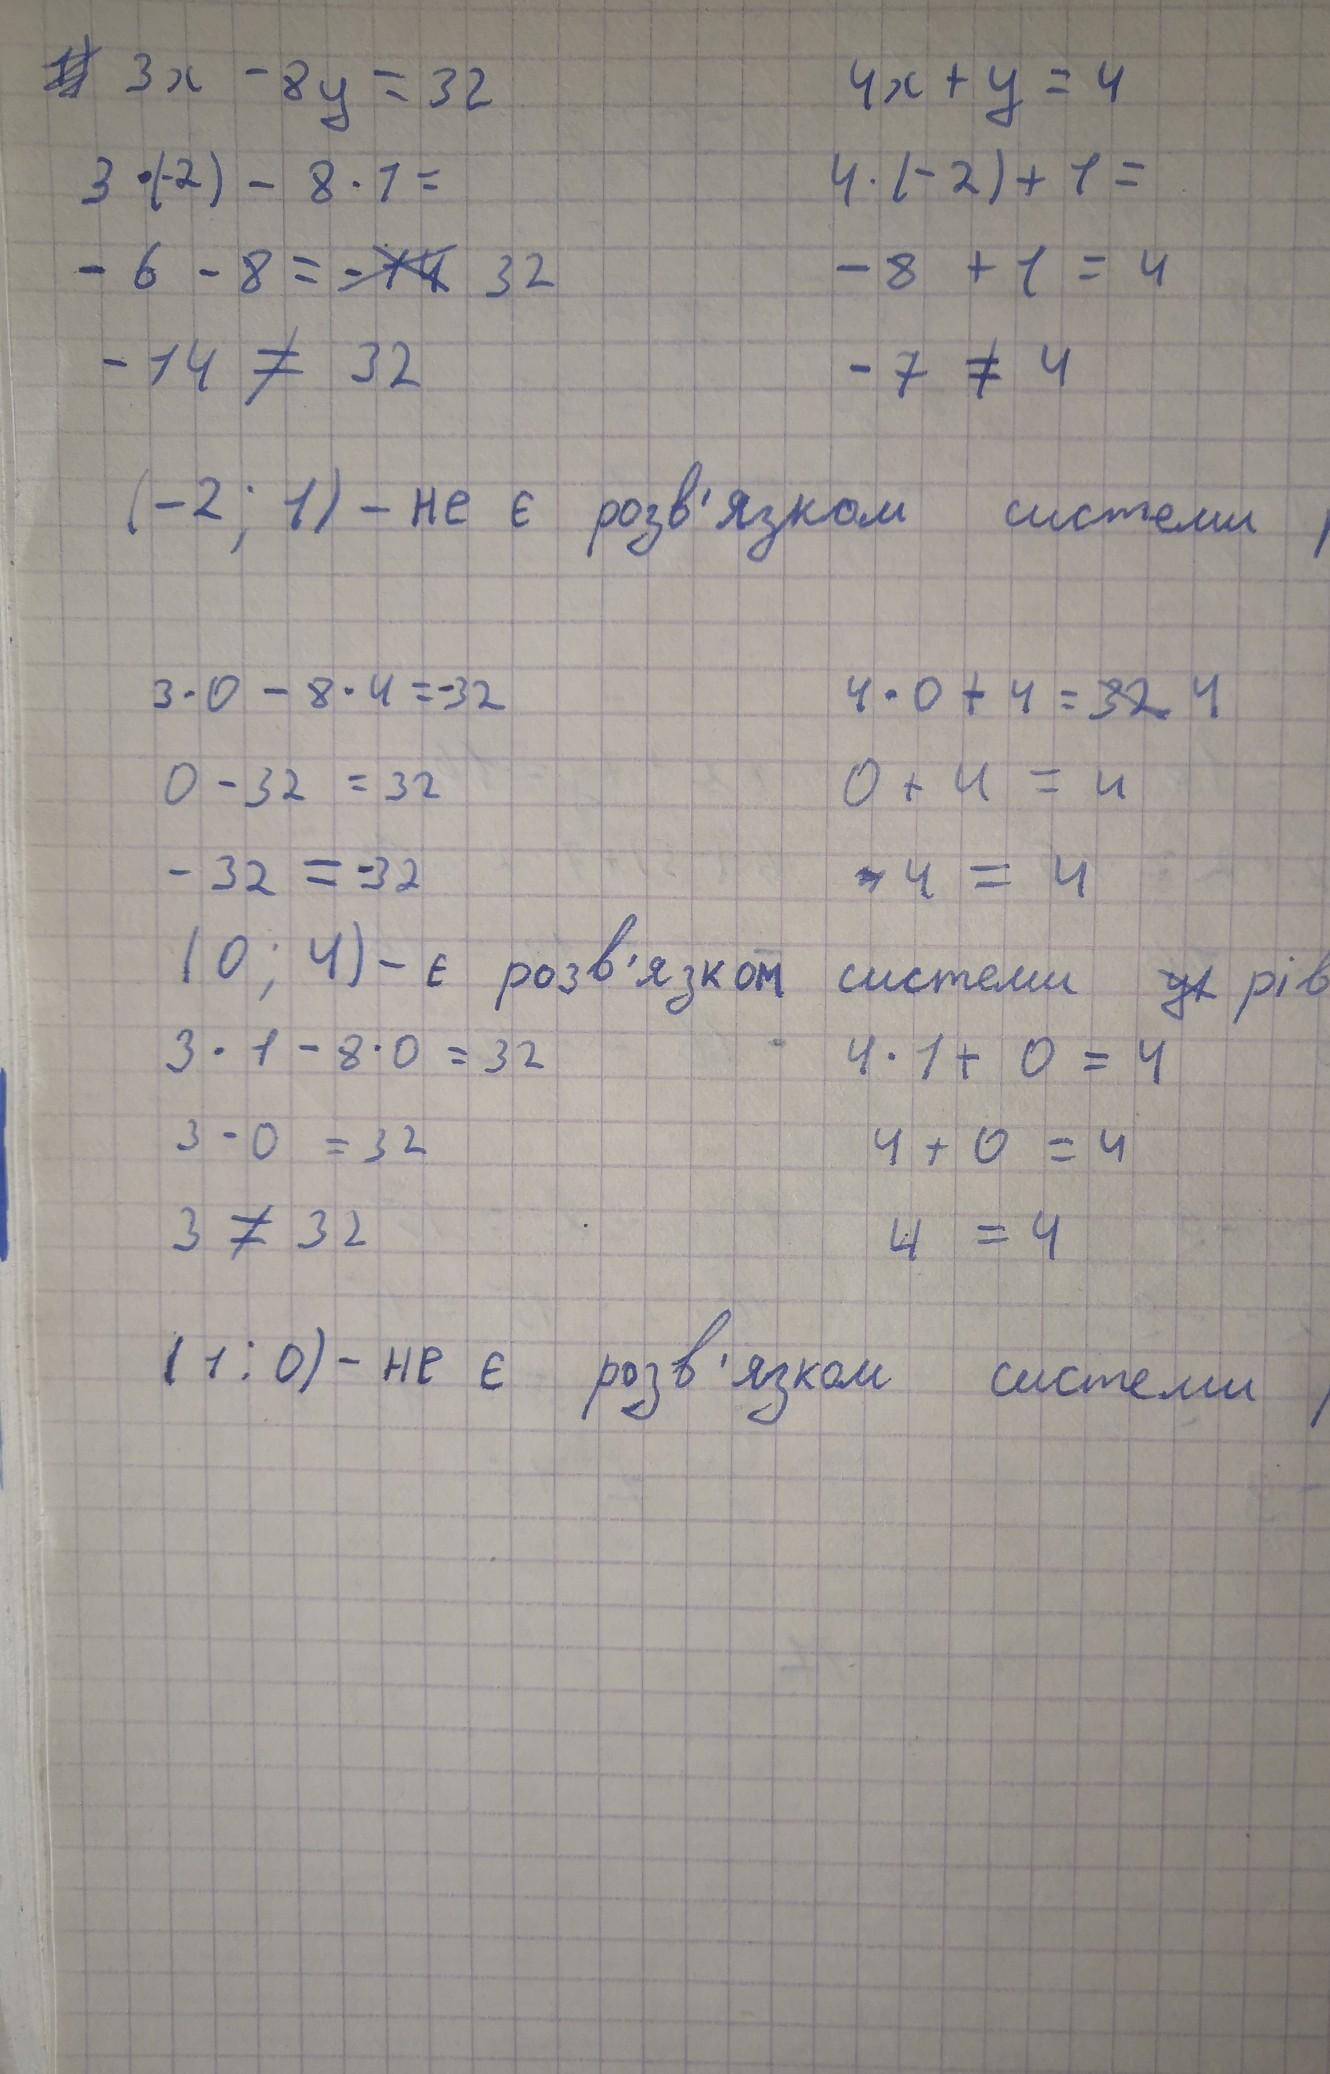 3x - 8y = 32 4x + y = 4
3 · (-2) - 8 · 1 = 4 · (-2) + 1 =
- 6 - 8 = -14 32 - 8 + 1 = 4
- 14 ≠ 32 - 7 ≠ 4
(-2; 1) - не є розв'язком системи
3 · 0 - 8 · 4 = -32 4 · 0 + 4 = 32 4
0 - 32 = 32 0 + 4 = 4
- 32 = -32 4 = 4
(0; 4) - є розв'язком системи рів
3 · 1 - 8 · 0 = 32 4 · 1 + 0 = 4
3 - 0 = 32 4 + 0 = 4
3 ≠ 32 4 = 4
(1; 0) - не є розв'язком системи